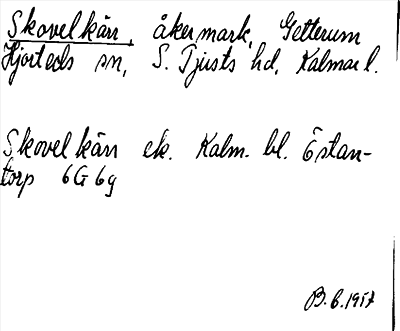 Skovelkärr, åkermark, Getterum
Hjorteds sn, S. Tjusts hd, Kalmar l.
Skovelkärr ek. Kalm. bl. Östan-
torp 6G 6g
B.b.1957